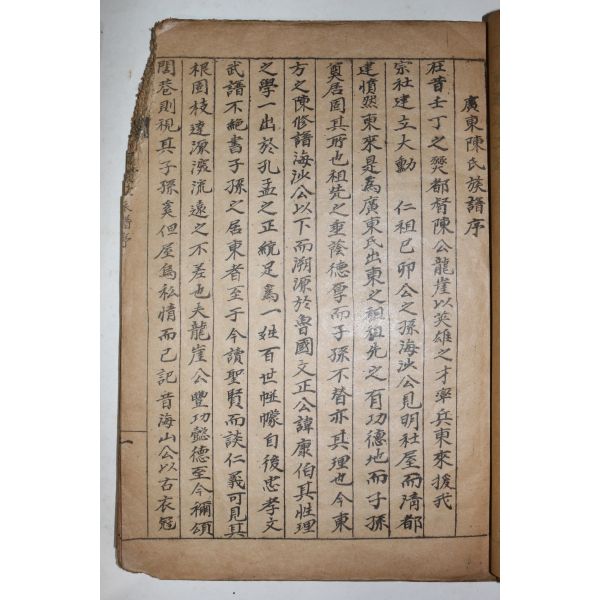 廣東陳氏族譜序
在昔壬丁之燹都督陳公龍崖以英雄之才率兵東來援我
宗社建立大勳 仁祖己卯公之孫海汕公見明社屋而清都
建憤然東來是為廣東氏出東之祖祖先之有功德地而子孫
奠居固其所也祖先之垂蔭德厚而子孫不替亦其理也今東
方之陳修譜海汕公以下而溯源於魯國文正公諱康伯其性理
之學一出於孔孟之正統足為一姓百世帡幪自後忠孝文
武譜不絶書子孫之居東者至于今讀聖賢而談仁義可見其
根固枝達源深流遠之不差也夫龍崖公豐功懿德至今稱頌
閭巷則視其子孫奚但屋烏私情而已記昔海山公以古衣冠
譜序
一